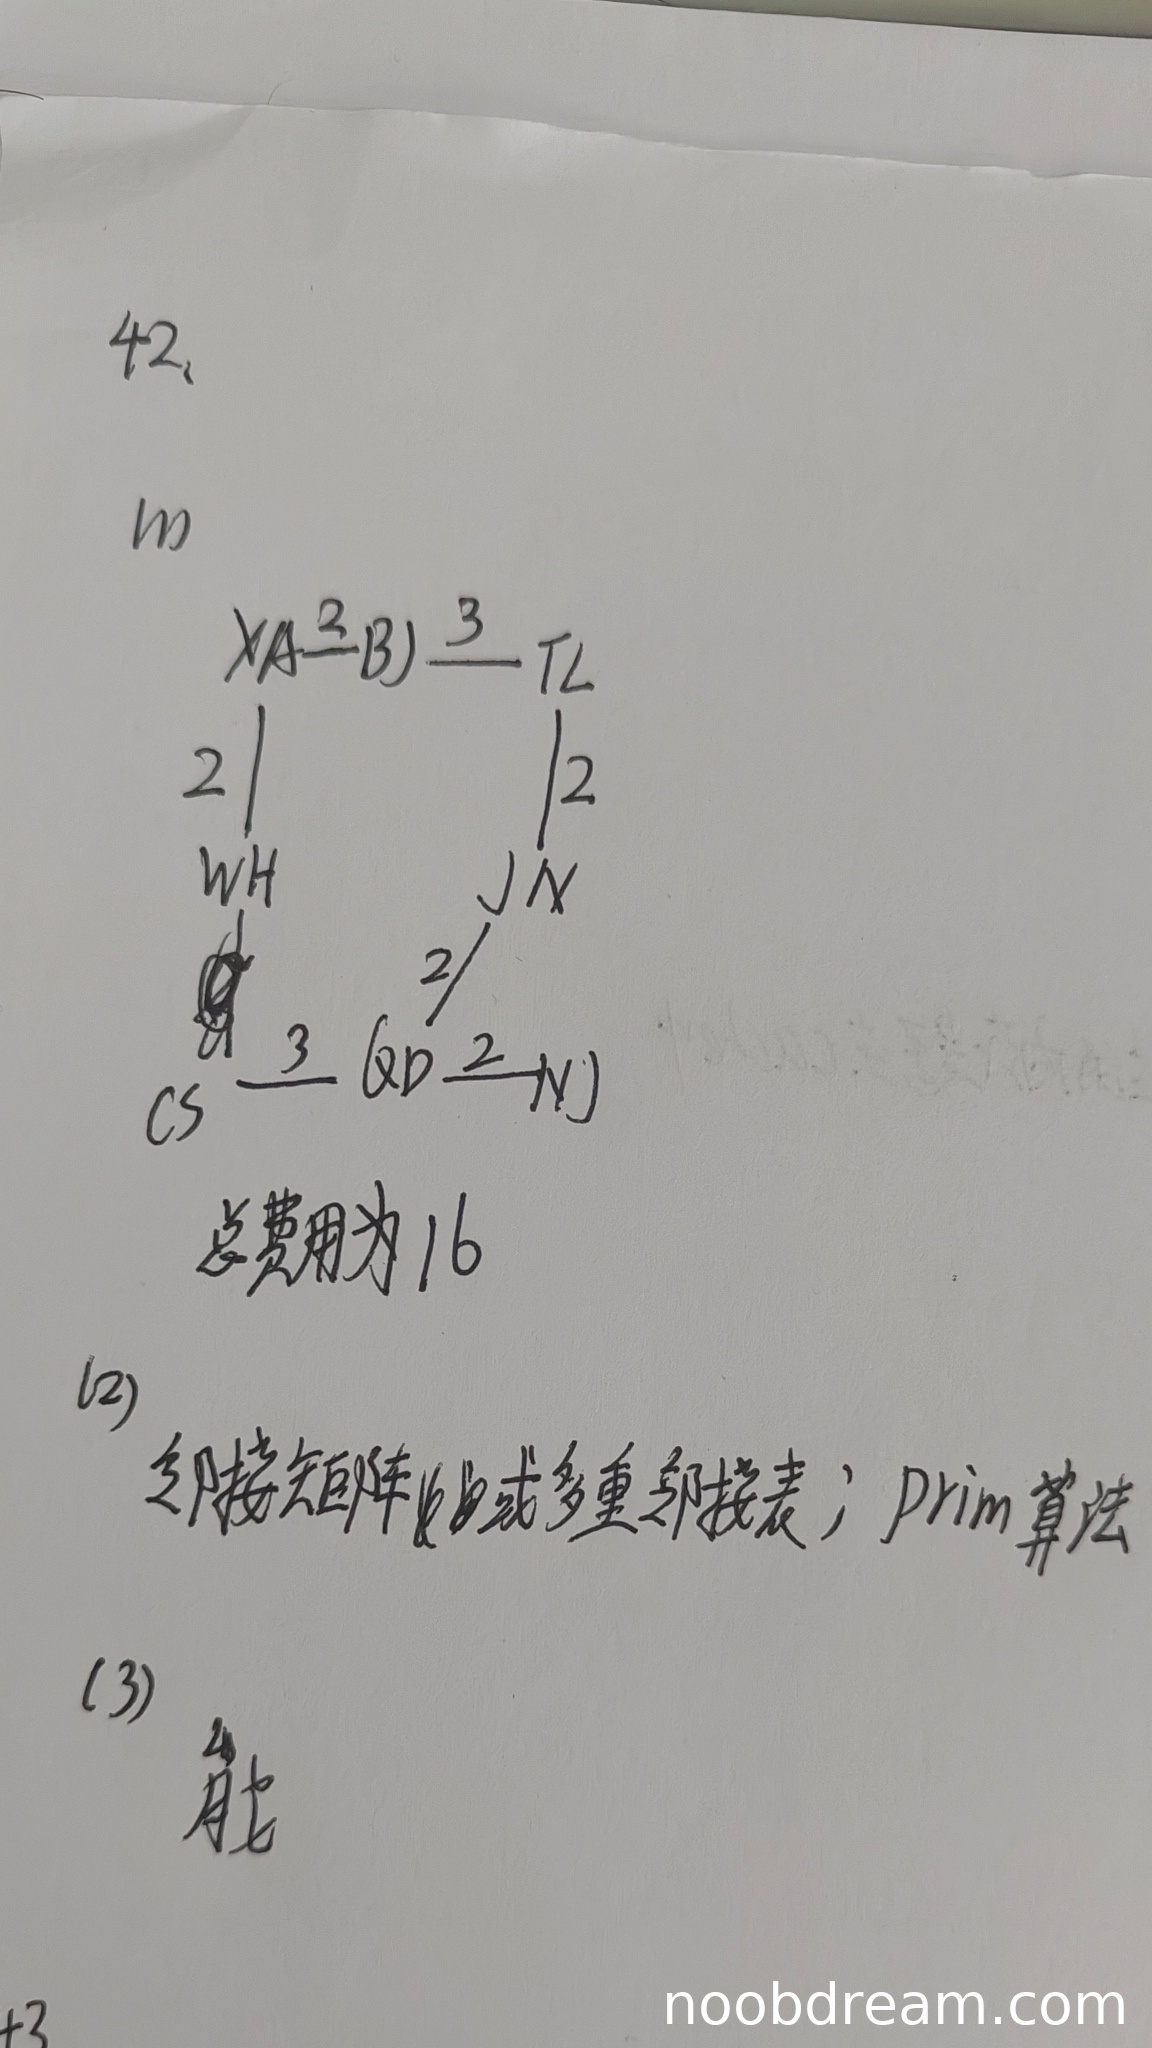 42、
(1)
XA 2 BJ 3 TL
2 2
WH JN
2
CS 3 QD 2 NJ
总费用为16
(2)
邻接矩阵或多重邻接表；Prim算法
(3)
能
+3
noobdream.com